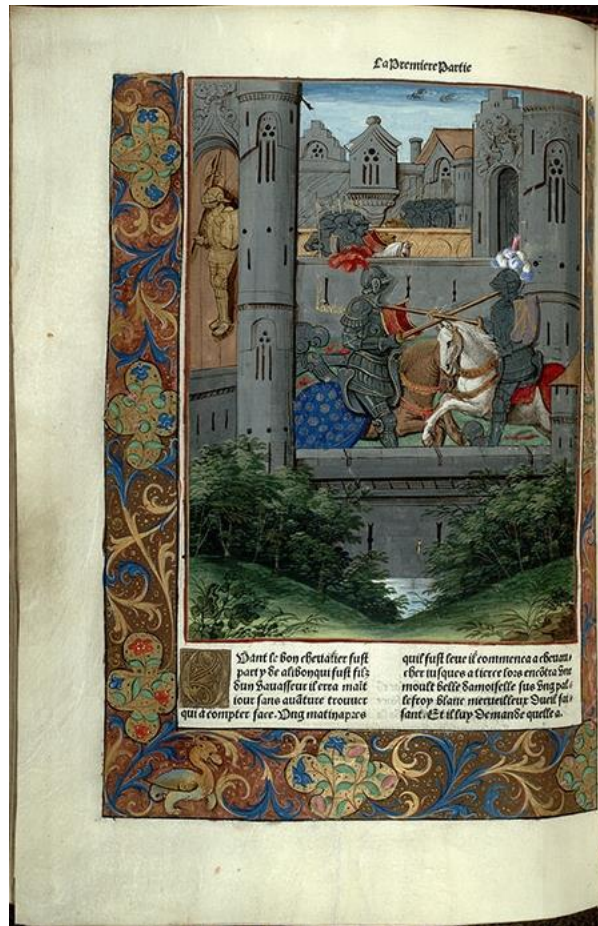 La Premiere Partie
Quant le bon chevalier fust
party de alibon qui fust filz
dun vavasseur il erra maĩt
iour sans auãture trouuer
qui a compter face. Ung matin apres
quil fust leue il commenca a cheuau-
cher iusques a tierce lors encõtra une
moult belle damoiselle sus ung pal-
lefroy blanc merueilleux dueil fai-
sant. Et il luy demande quelle a.